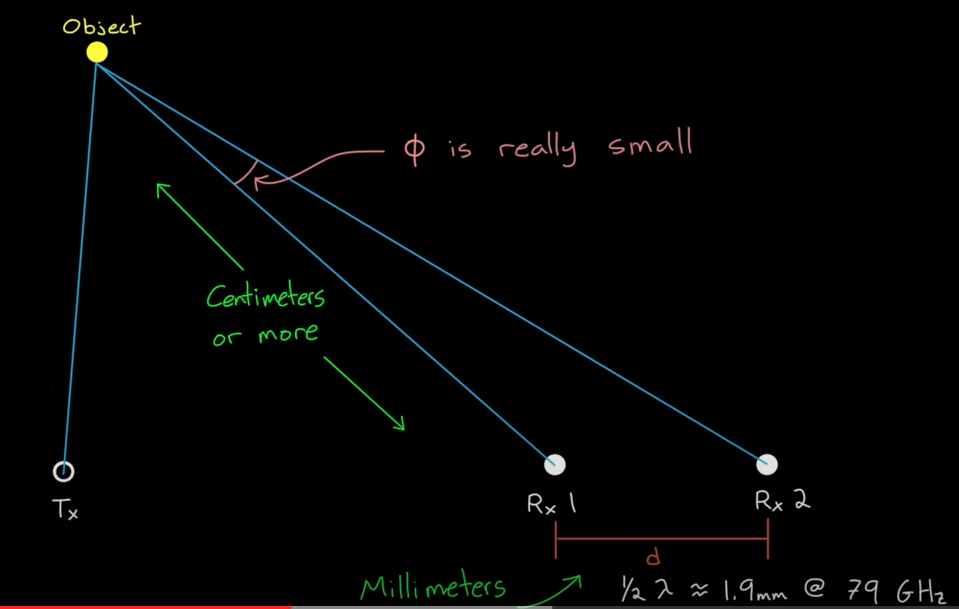 Object
ϕ is really small
Centimeters
or more
Tx
Rx 1
Rx 2
d
Millimeters
½ λ ≈ 1.9mm @ 79 GHz